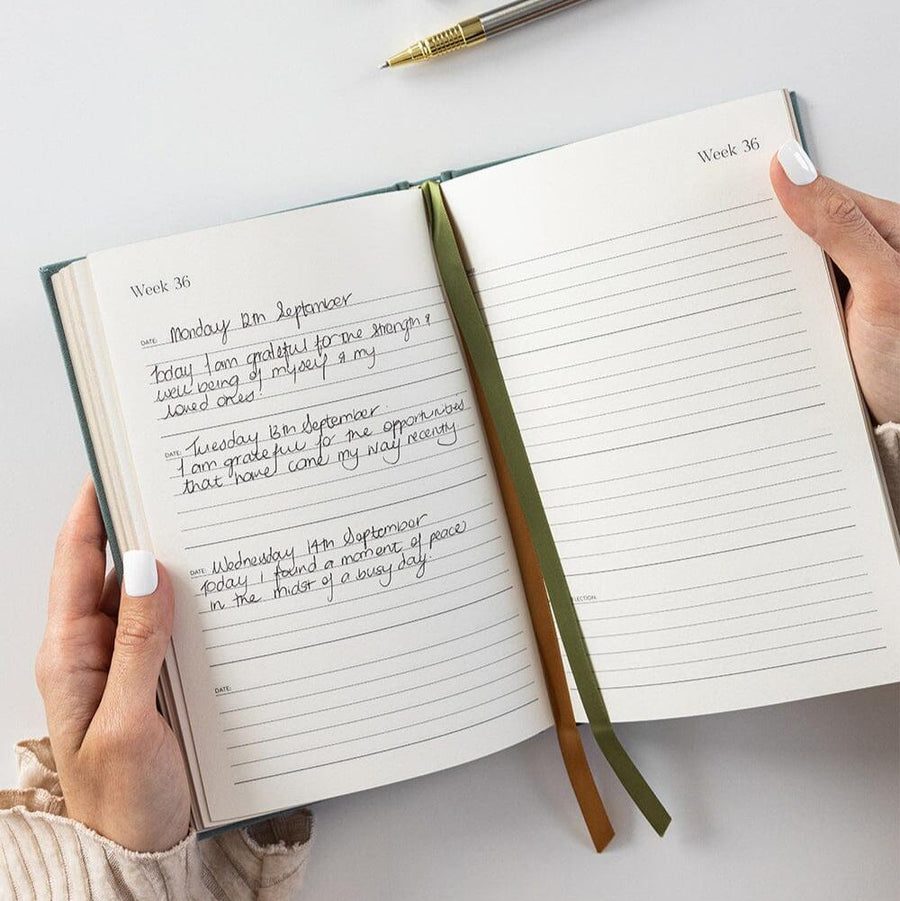 Week 36
DATE: Monday 12th September
Today I am grateful for the strength &
well being of myself & my
loved ones!
DATE: Tuesday 13th September.
I am grateful for the opportunities
that have come my way recently
DATE: Wednesday 14th September
Today I found a moment of peace
in the midst of a busy day.
DATE:
Week 36
LECTION: